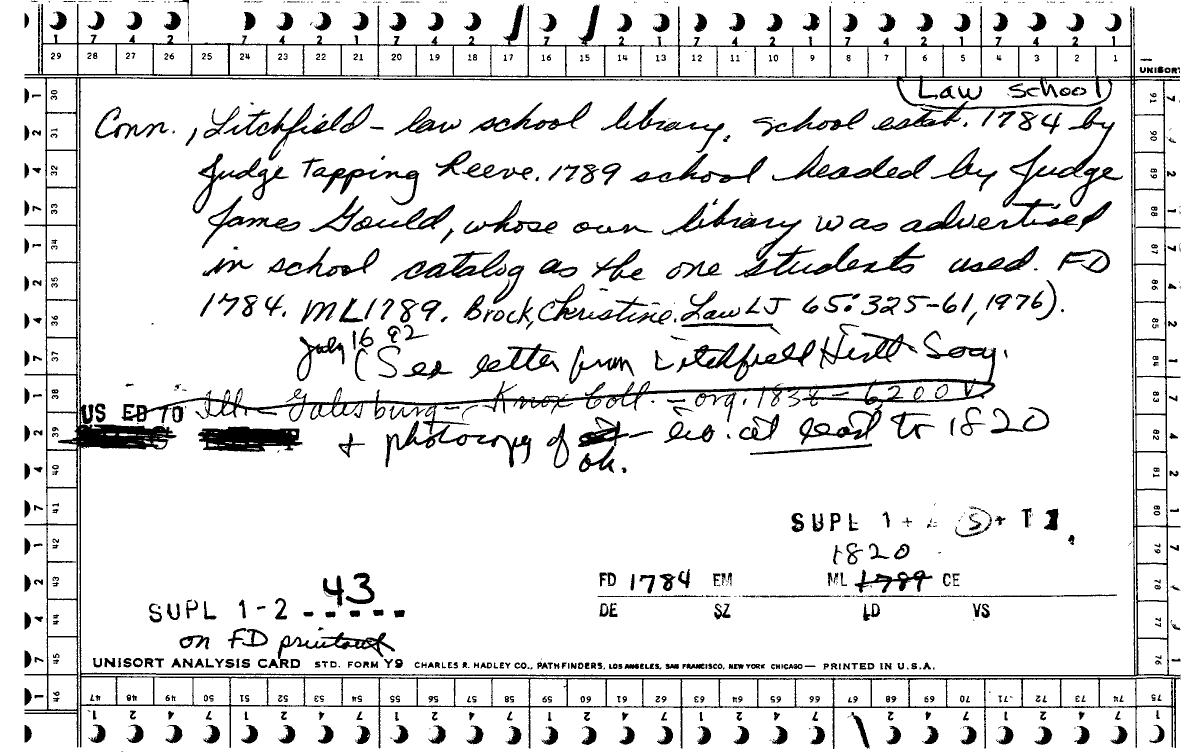 7 4 2 7 4 2 1 7 4 2 1 7 4 2 1 7 4 2 1 7 4 2 1
29 28 27 26 25 24 23 22 21 20 19 18 17 16 15 14 13 12 11 10 9 8 7 6 5 4 3 2 1
UNISORT
Law school
Conn., Litchfield – law school library. School estab. 1784 by
Judge Tapping Reeve. 1789 school headed by Judge
James Gould, whose own library was advertised
in school catalog as the one students used. FD
1784. ML 1789. Brock, Christine. Law LJ 65:325-61, 1976).
July 16 82
(See letter from Litchfield Hist. Socy.
US ED TO Ill. – Galesburg – Knox Coll. – org. 1838 – 6200 V.
+ photocopy of – lib. at least to 1820
ok.
SUPL 1 + (S) + T
1820
FD 1784 EM ML 1789 CE
DE SZ LD VS
43
SUPL 1-2 - - - - -
on FD printout
UNISORT ANALYSIS CARD STD. FORM Y9 CHARLES R. HADLEY CO., PATHFINDERS, LOS ANGELES, SAN FRANCISCO, NEW YORK CHICAGO — PRINTED IN U.S.A.
47 48 49 50 51 52 53 54 55 56 57 58 59 60 61 62 63 64 65 66 67 68 69 70 71 72 73 74 75
1 2 4 7 1 2 4 7 1 2 4 7 1 2 4 7 1 2 4 7 1 2 4 7 1 2 4 7